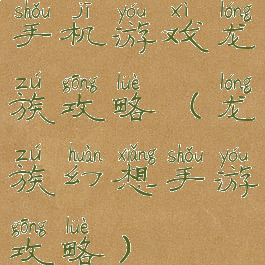 shǒu jī yóu xì lóng
手机游戏龙
zú gōng lüè lóng
族攻略（龙
zú huàn xiǎng shǒu yóu
族幻想手游
gōng lüè
攻略）